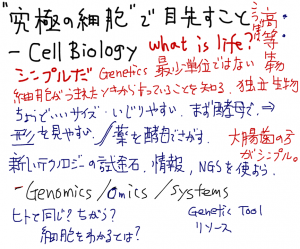 "究極の細胞"で目先すこと
こうぼ
高等生物
- Cell Biology what is life?
シンプルだ Genetics 最少単位ではない
細胞がうまれたときからもっていることを知る. 独立生物
ちょうどいいサイズ・いじりやすい. まず酵母で. ⇒
形を見やすい. / 薬を酵母でさがす.
大腸菌の方がシンプル。
新しいテクノロジーの試金石. 情報, NGSを使よう.
- Genomics /omics /systems
ヒトで同じ? ちがう?
細胞をわかるては?
Genetic Tool
リソース